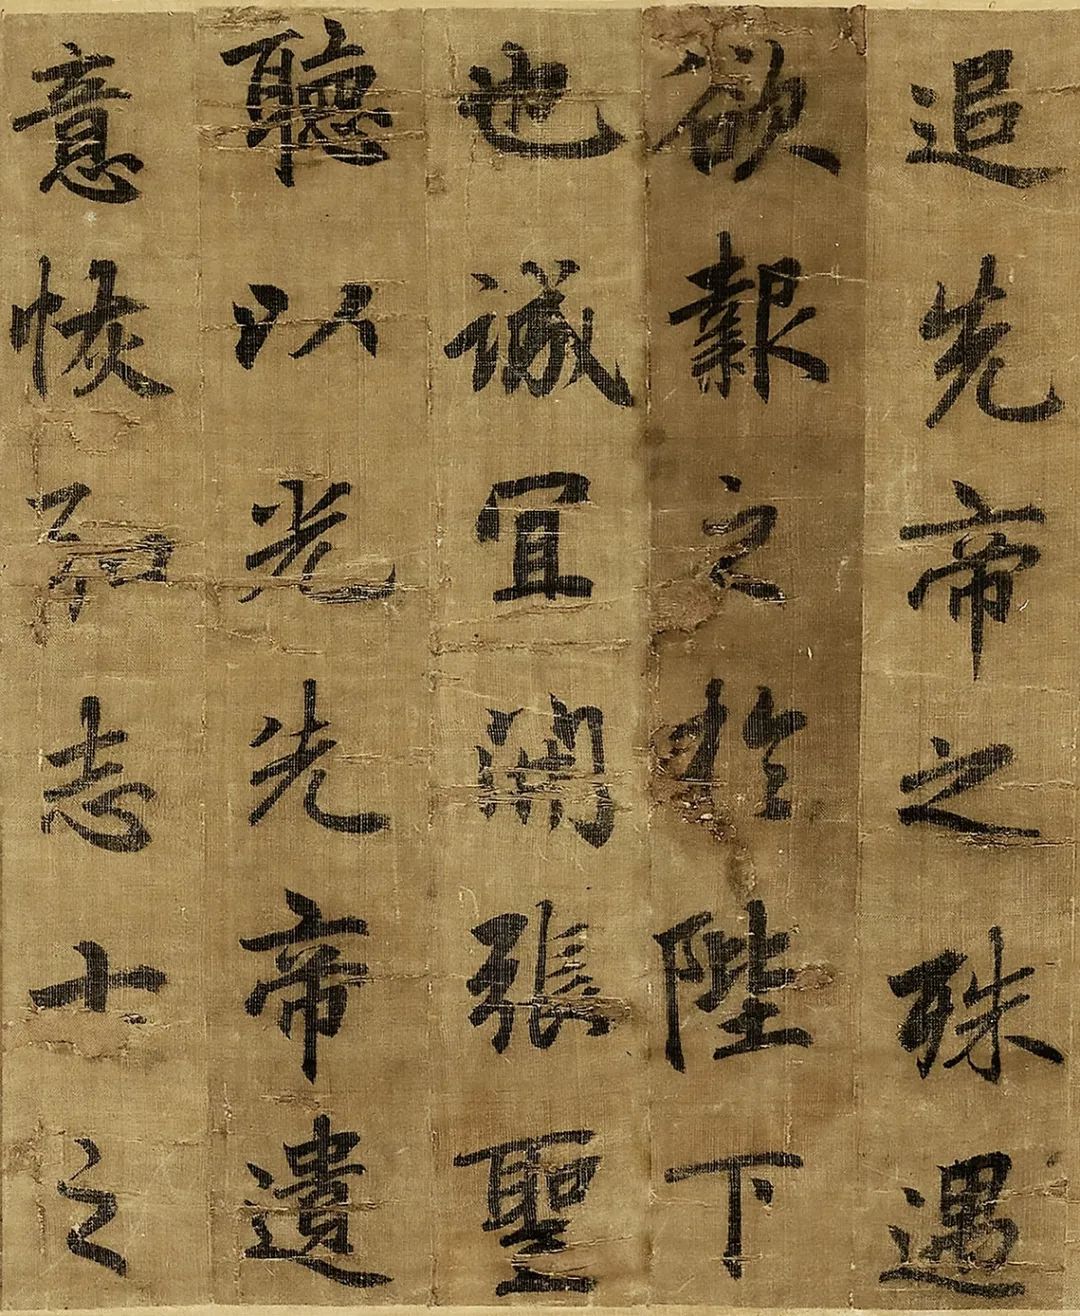 追先帝之殊遇
欲報之於陛下
也誠宜開張聖
聽以光先帝遺
意恢志士之